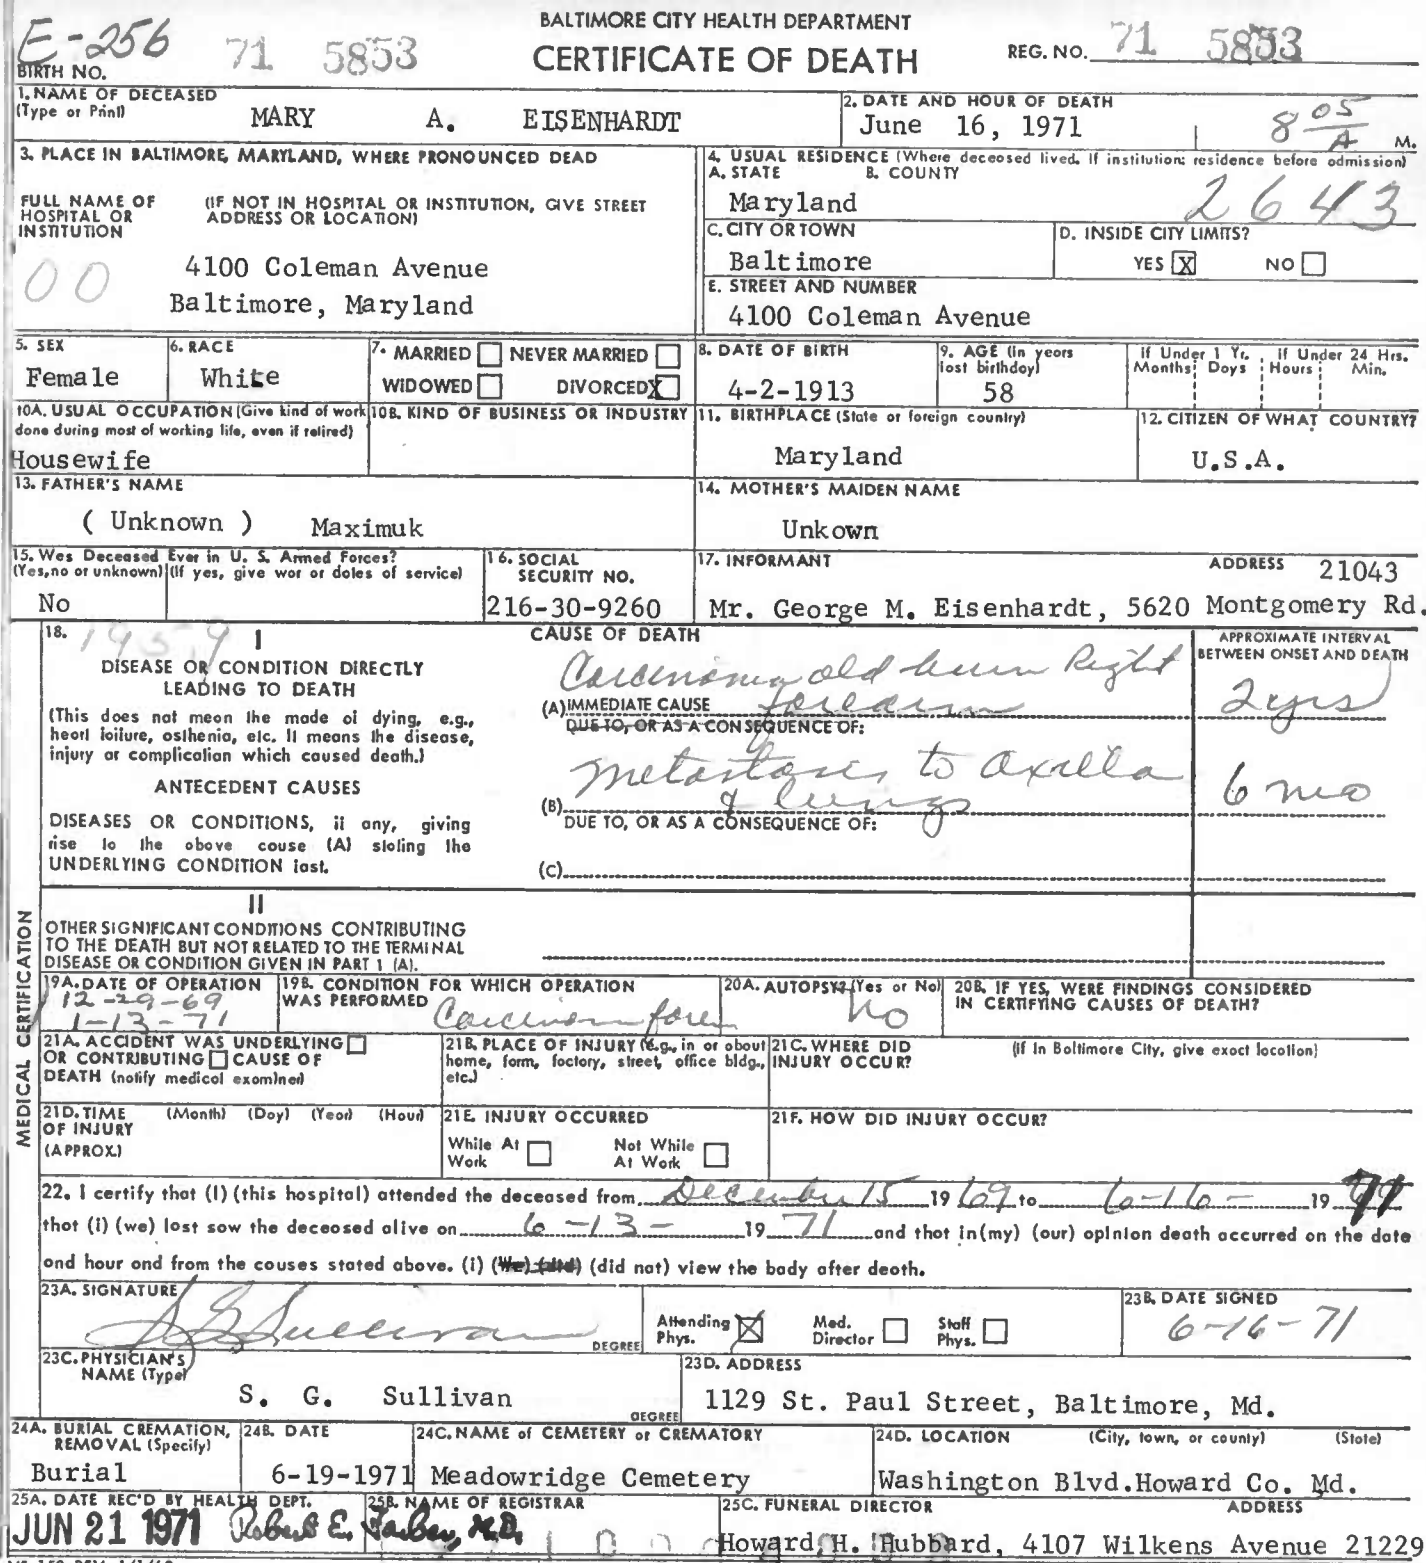 BALTIMORE CITY HEALTH DEPARTMENT
CERTIFICATE OF DEATH
E-256
BIRTH NO.
71 5853
REG. NO. 71 5853
1. NAME OF DECEASED
(Type or Print)
MARY A. EISENHARDT
2. DATE AND HOUR OF DEATH
June 16, 1971 8 05 A M.
3. PLACE IN BALTIMORE, MARYLAND, WHERE PRONOUNCED DEAD
FULL NAME OF HOSPITAL OR INSTITUTION
(IF NOT IN HOSPITAL OR INSTITUTION, GIVE STREET ADDRESS OR LOCATION)
00
4100 Coleman Avenue
Baltimore, Maryland
4. USUAL RESIDENCE (Where deceased lived. If institution: residence before admission)
A. STATE B. COUNTY
Maryland 2643
C. CITY OR TOWN
Baltimore
D. INSIDE CITY LIMITS?
YES X NO
E. STREET AND NUMBER
4100 Coleman Avenue
5. SEX
Female
6. RACE
White
7. MARRIED NEVER MARRIED
WIDOWED DIVORCED X
8. DATE OF BIRTH
4-2-1913
9. AGE (In years last birthday)
58
If Under 1 Yr. If Under 24 Hrs.
Months Days Hours Min.
10A. USUAL OCCUPATION (Give kind of work done during most of working life, even if retired)
Housewife
10B. KIND OF BUSINESS OR INDUSTRY
11. BIRTHPLACE (State or foreign country)
Maryland
12. CITIZEN OF WHAT COUNTRY?
U.S.A.
13. FATHER'S NAME
( Unknown ) Maximuk
14. MOTHER'S MAIDEN NAME
Unkown
15. Was Deceased Ever in U. S. Armed Forces?
(Yes, no or unknown) (If yes, give war or dates of service)
No
16. SOCIAL SECURITY NO.
216-30-9260
17. INFORMANT ADDRESS 21043
Mr. George M. Eisenhardt, 5620 Montgomery Rd.
MEDICAL CERTIFICATION
18. 195.9
I
DISEASE OR CONDITION DIRECTLY
LEADING TO DEATH
(This does not mean the mode of dying, e.g.,
heart failure, asthenia, etc. It means the disease,
injury or complication which caused death.)
ANTECEDENT CAUSES
DISEASES OR CONDITIONS, if any, giving
rise to the above cause (A) stating the
UNDERLYING CONDITION last.
CAUSE OF DEATH
APPROXIMATE INTERVAL
BETWEEN ONSET AND DEATH
Carcinoma old burn Right
(A) IMMEDIATE CAUSE forearm 2 yrs
DUE TO, OR AS A CONSEQUENCE OF:
Metastases to Axilla
(B) & lungs 6 mo
DUE TO, OR AS A CONSEQUENCE OF:
(C)
II
OTHER SIGNIFICANT CONDITIONS CONTRIBUTING
TO THE DEATH BUT NOT RELATED TO THE TERMINAL
DISEASE OR CONDITION GIVEN IN PART 1 (A).
19A. DATE OF OPERATION
12-29-69
1-13-71
19B. CONDITION FOR WHICH OPERATION WAS PERFORMED
Carcinoma
20A. AUTOPSY? (Yes or No)
No
20B. IF YES, WERE FINDINGS CONSIDERED
IN CERTIFYING CAUSES OF DEATH?
21A. ACCIDENT WAS UNDERLYING
OR CONTRIBUTING CAUSE OF
DEATH (notify medical examiner)
21B. PLACE OF INJURY (e.g., in or about
home, farm, factory, street, office bldg.,
etc.)
21C. WHERE DID INJURY OCCUR?
(If In Baltimore City, give exact location)
21D. TIME OF INJURY (APPROX.)
(Month) (Day) (Year) (Hour)
21E. INJURY OCCURRED
While At Work Not While At Work
21F. HOW DID INJURY OCCUR?
22. I certify that (I) (this hospital) attended the deceased from December 15 19 69 to 6-16- 19 71
that (I) (we) last saw the deceased alive on 6-13- 19 71 and that in (my) (our) opinion death occurred on the date
and hour and from the causes stated above. (I) (We) (did) (did not) view the body after death.
23A. SIGNATURE
S G Sullivan
DEGREE
Attending Phys. X Med. Director Staff Phys.
23B. DATE SIGNED
6-16-71
23C. PHYSICIAN'S NAME (Type)
S. G. Sullivan
DEGREE
23D. ADDRESS
1129 St. Paul Street, Baltimore, Md.
24A. BURIAL CREMATION, REMOVAL (Specify)
Burial
24B. DATE
6-19-1971
24C. NAME of CEMETERY or CREMATORY
Meadowridge Cemetery
24D. LOCATION (City, town, or county) (State)
Washington Blvd.Howard Co. Md.
25A. DATE REC'D BY HEALTH DEPT.
JUN 21 1971
25B. NAME OF REGISTRAR
Robert E. Farber, M.D.
25C. FUNERAL DIRECTOR ADDRESS
Howard H. Hubbard, 4107 Wilkens Avenue 21229